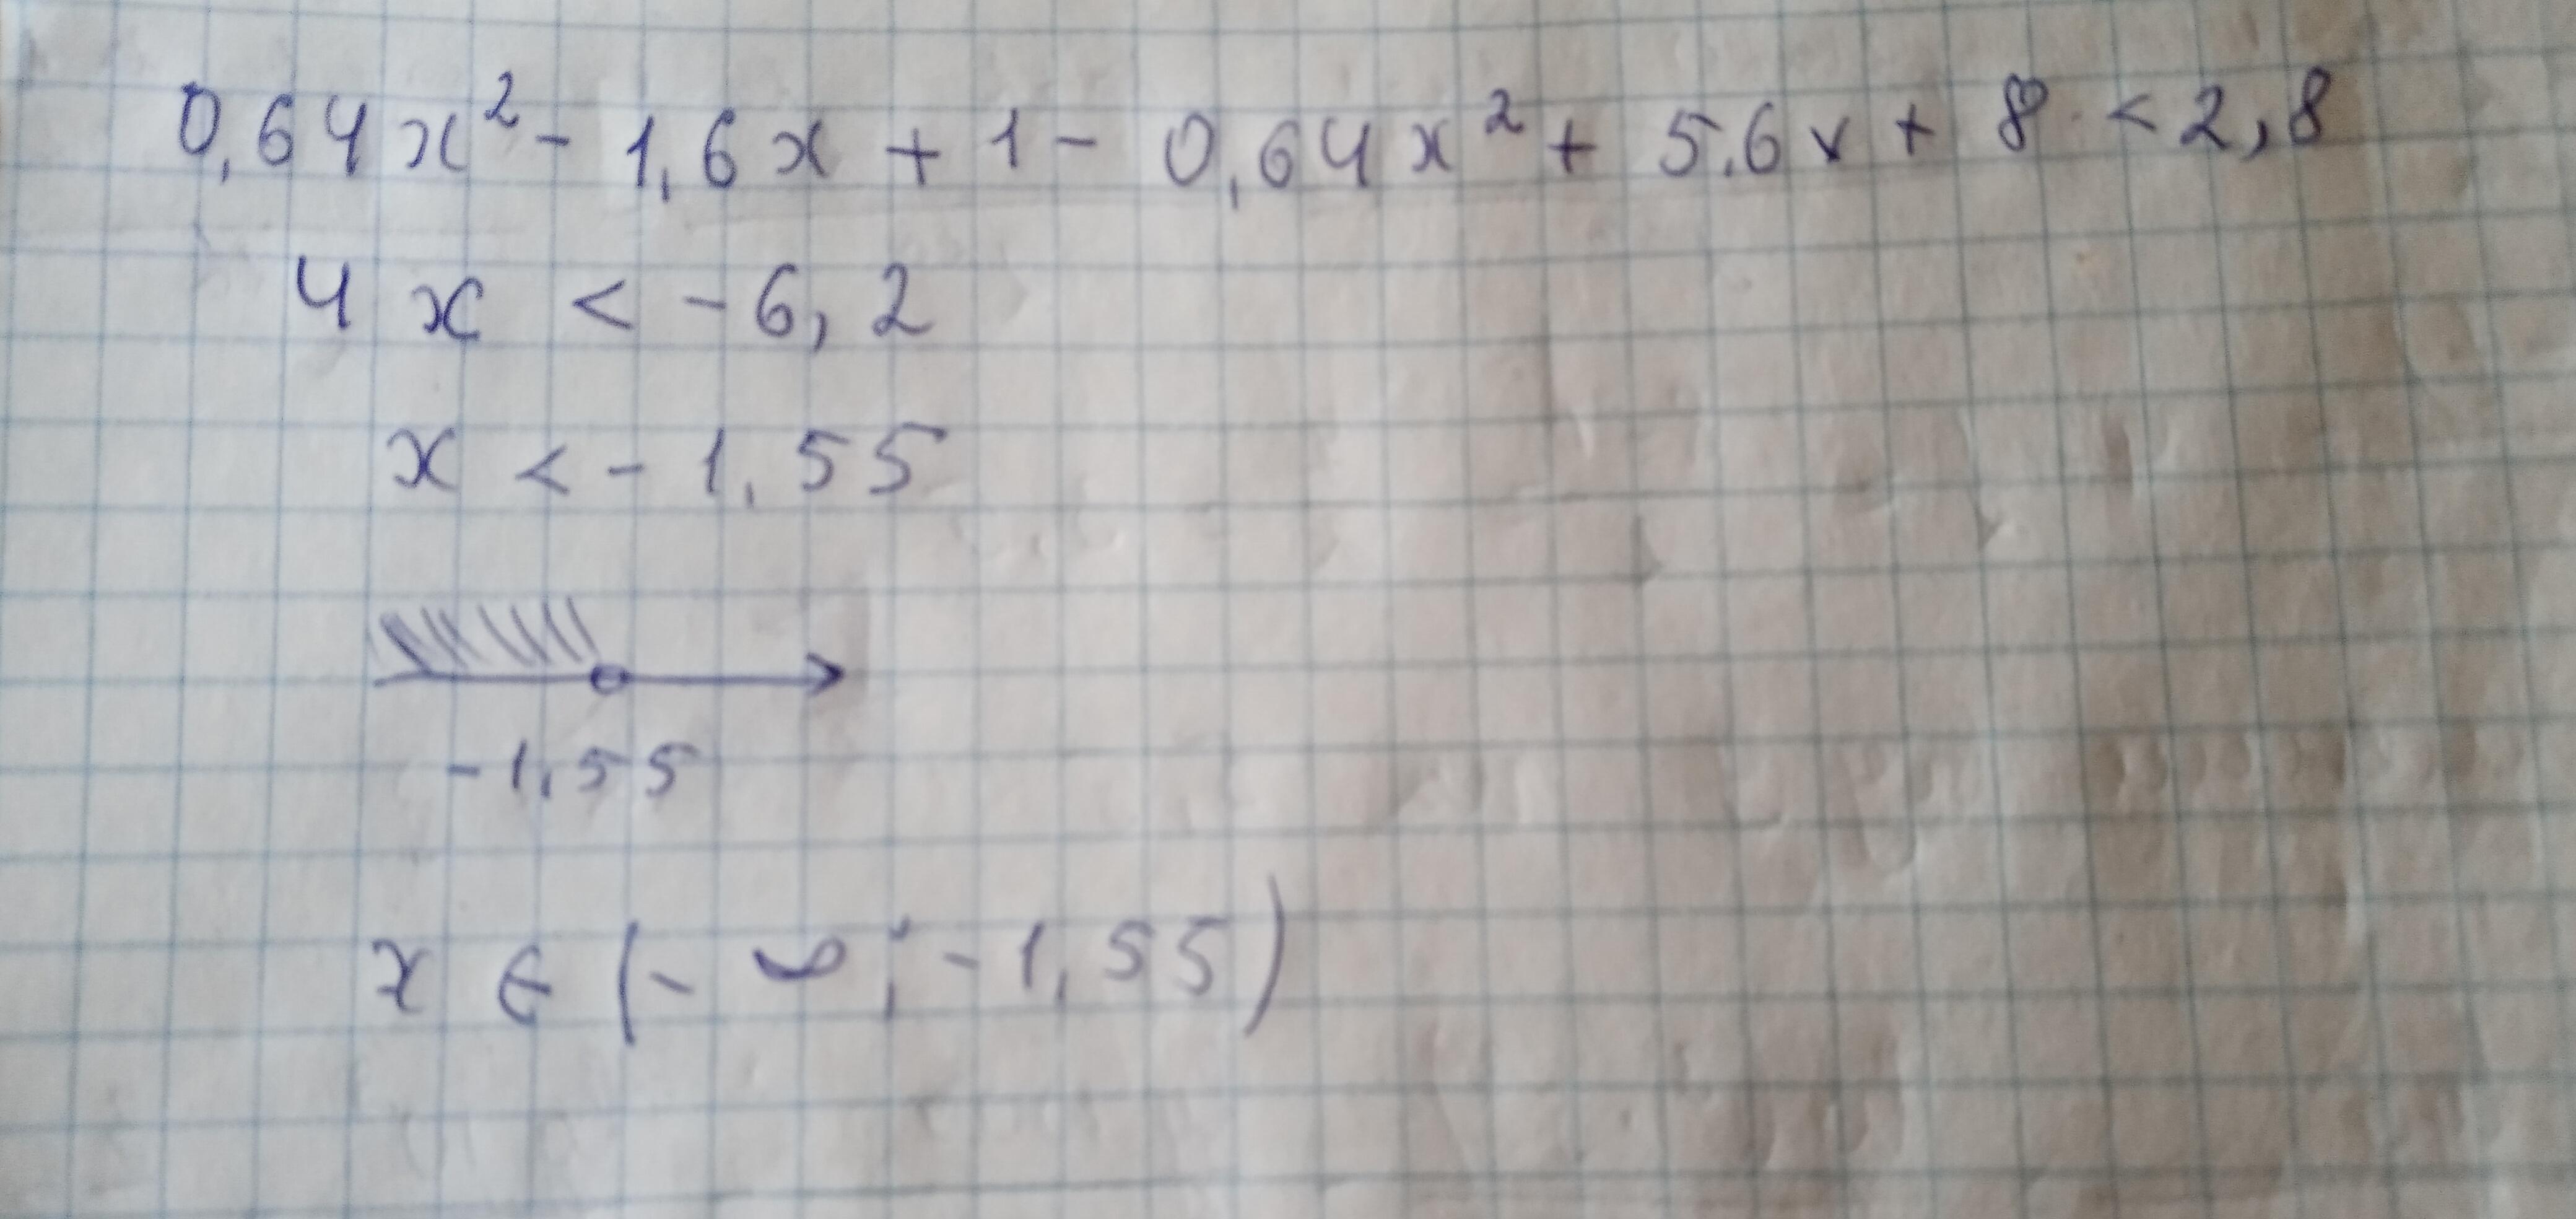 0,64x² - 1,6x + 1 - 0,64x² + 5,6x + 8 < 2,8
4x < -6,2
x < -1,55
-1,55
x ∈ (-∞; -1,55)